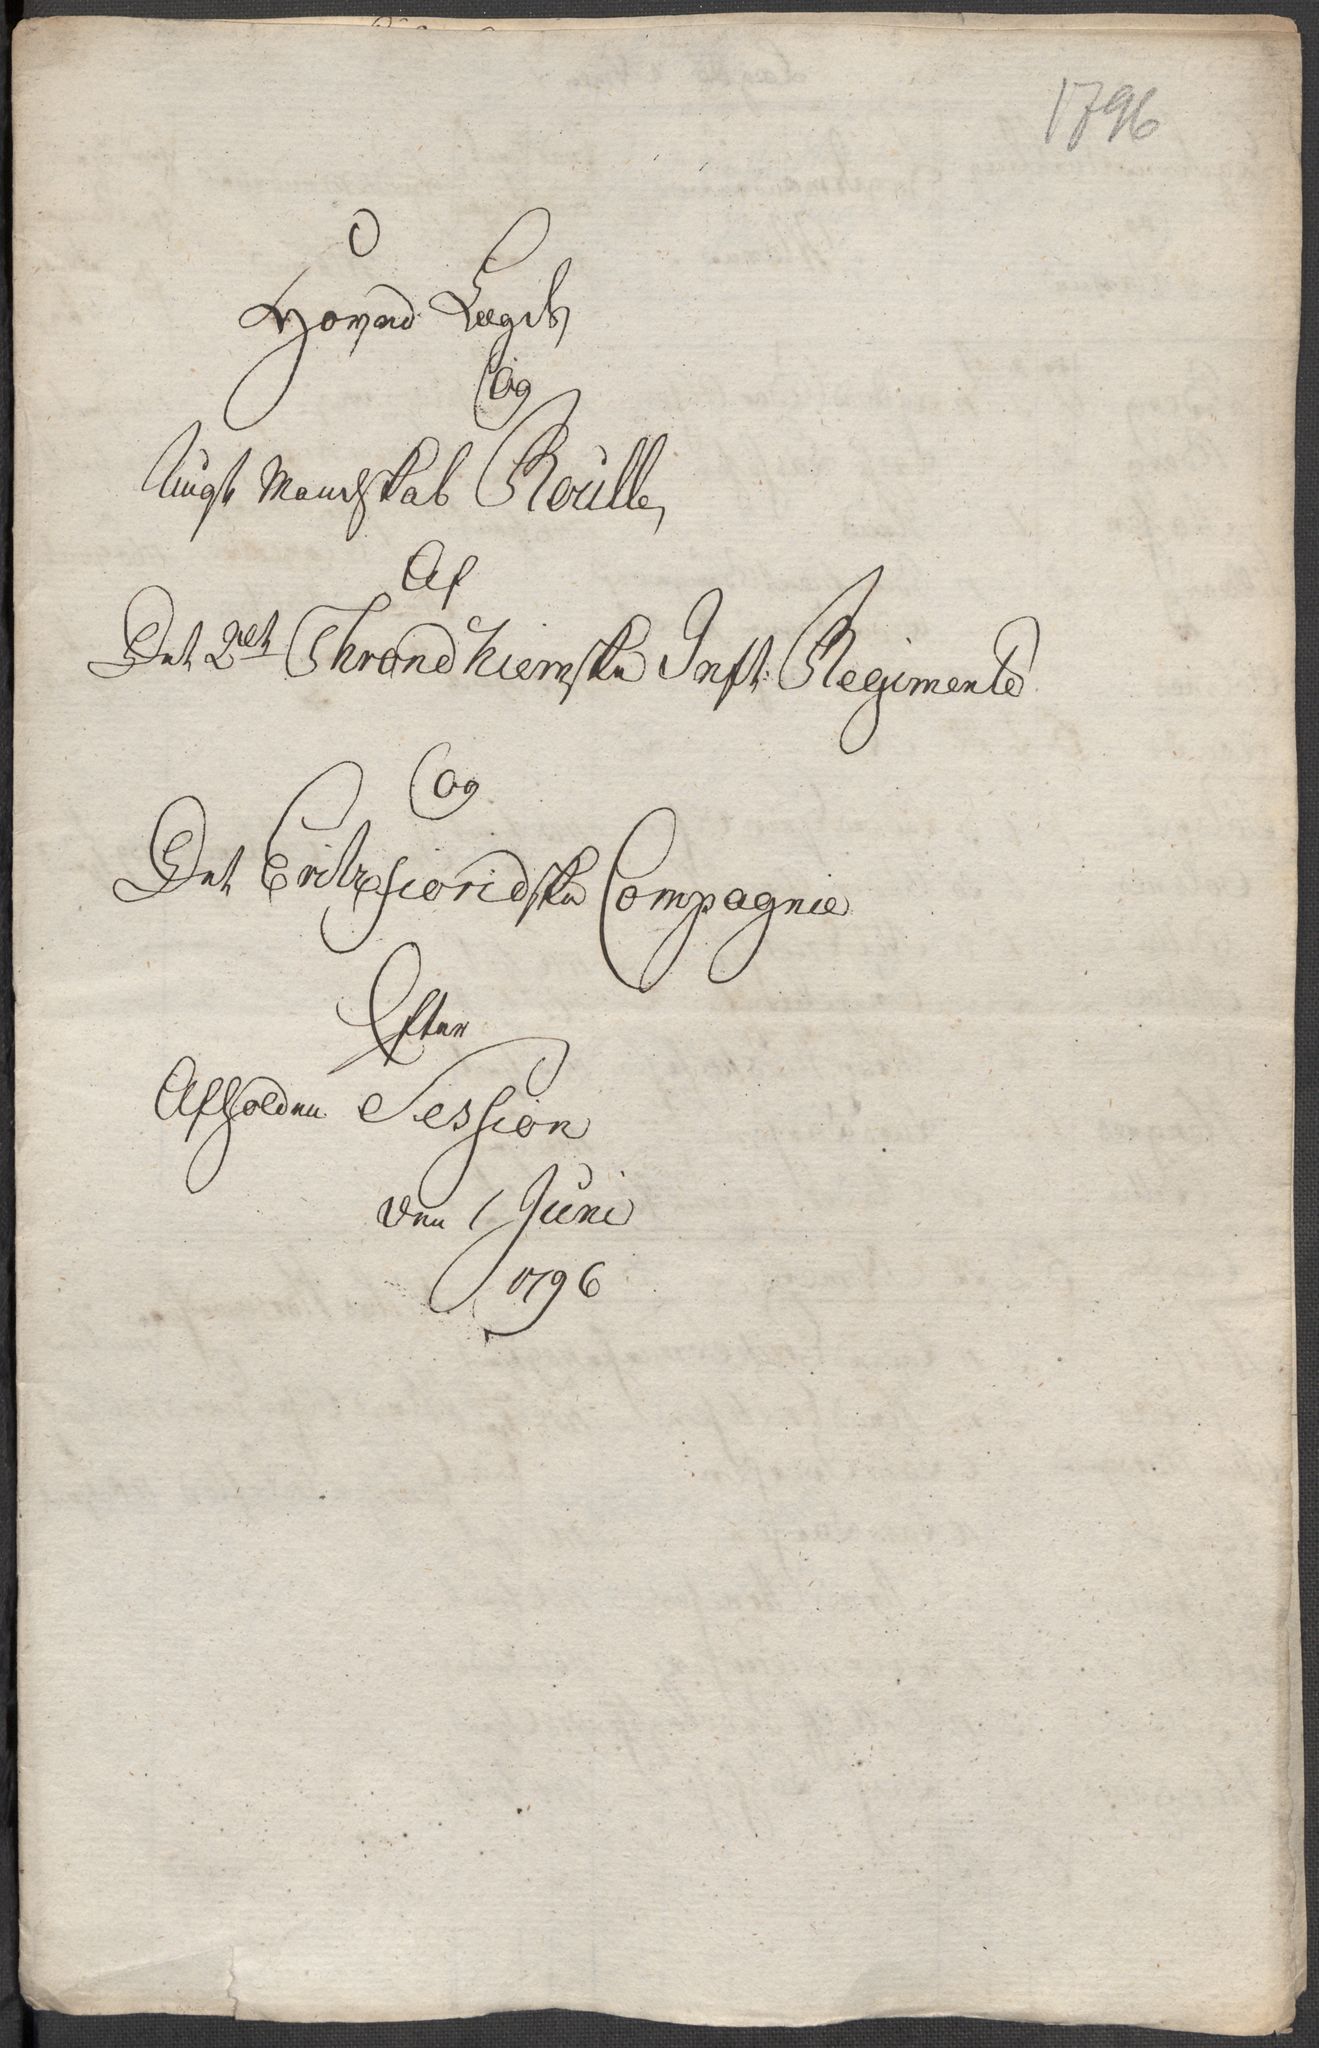 1796
Hoved Lægds
Og
Ungt Mandskab Roulle,
Af
Det 2det Throndhiemske Inft: Regimente
Og
Det Eridtzfiordske Compagnie
Efter
Afholden Session
den 1 Juni
1796